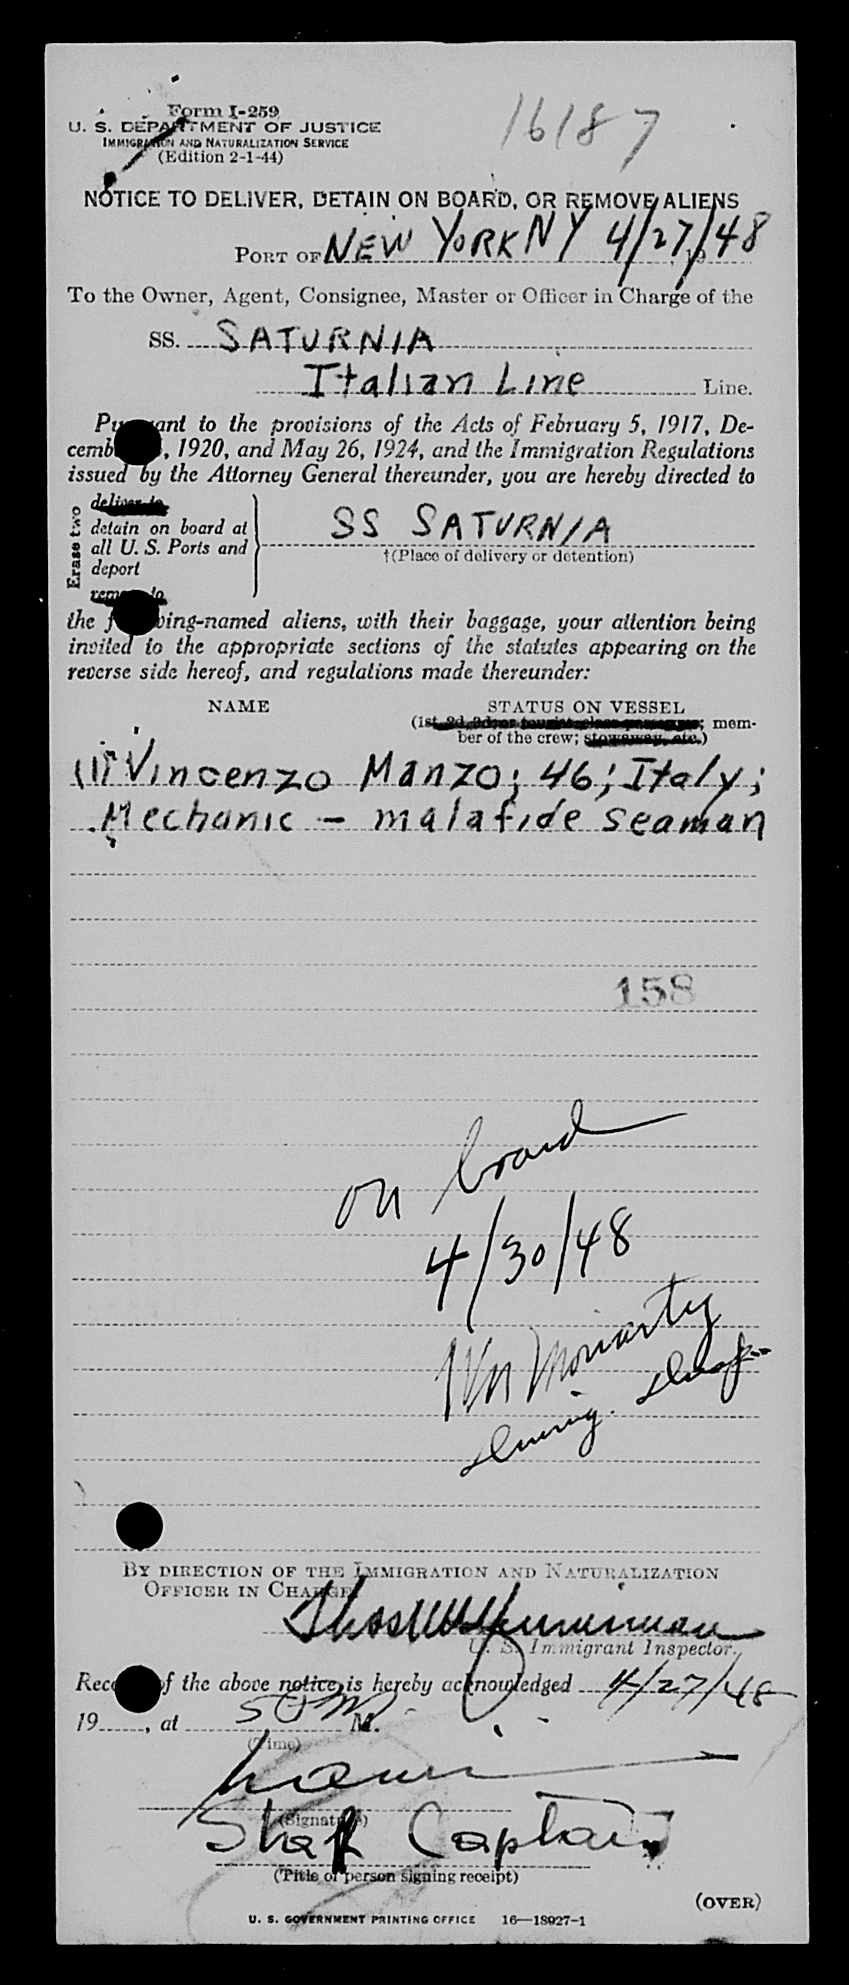 Form I-259
16187
U. S. DEPARTMENT OF JUSTICE
IMMIGRATION AND NATURALIZATION SERVICE
(Edition 2-1-44)
NOTICE TO DELIVER, DETAIN ON BOARD, OR REMOVE ALIENS
PORT OF NEW YORK NY 4/27/48
To the Owner, Agent, Consignee, Master or Officer in Charge of the
SS. SATURNIA
Italian Line Line.
Pursuant to the provisions of the Acts of February 5, 1917, De-
cemb , 1920, and May 26, 1924, and the Immigration Regulations
issued by the Attorney General thereunder, you are hereby directed to
Erase two
deliver to
detain on board at
all U. S. Ports and
deport
remove to
SS SATURNIA
†(Place of delivery or detention)
the following-named aliens, with their baggage, your attention being
invited to the appropriate sections of the statutes appearing on the
reverse side hereof, and regulations made thereunder:
NAME STATUS ON VESSEL
(1st, 2d, 3d, or tourist class passenger; mem-
ber of the crew; stowaway, etc.)
(1) Vincenzo Manzo; 46; Italy;
Mechanic - malafide seaman
158
on board
4/30/48
Wm Moriarty
BY DIRECTION OF THE IMMIGRATION AND NATURALIZATION
OFFICER IN CHARGE
U. S. Immigrant Inspector.
Receipt of the above notice is hereby acknowledged 4/27/48
19 , at M.
(Time)
(Signature)
Staff Captain
(Title of person signing receipt)
(OVER)
U. S. GOVERNMENT PRINTING OFFICE 16—18927-1